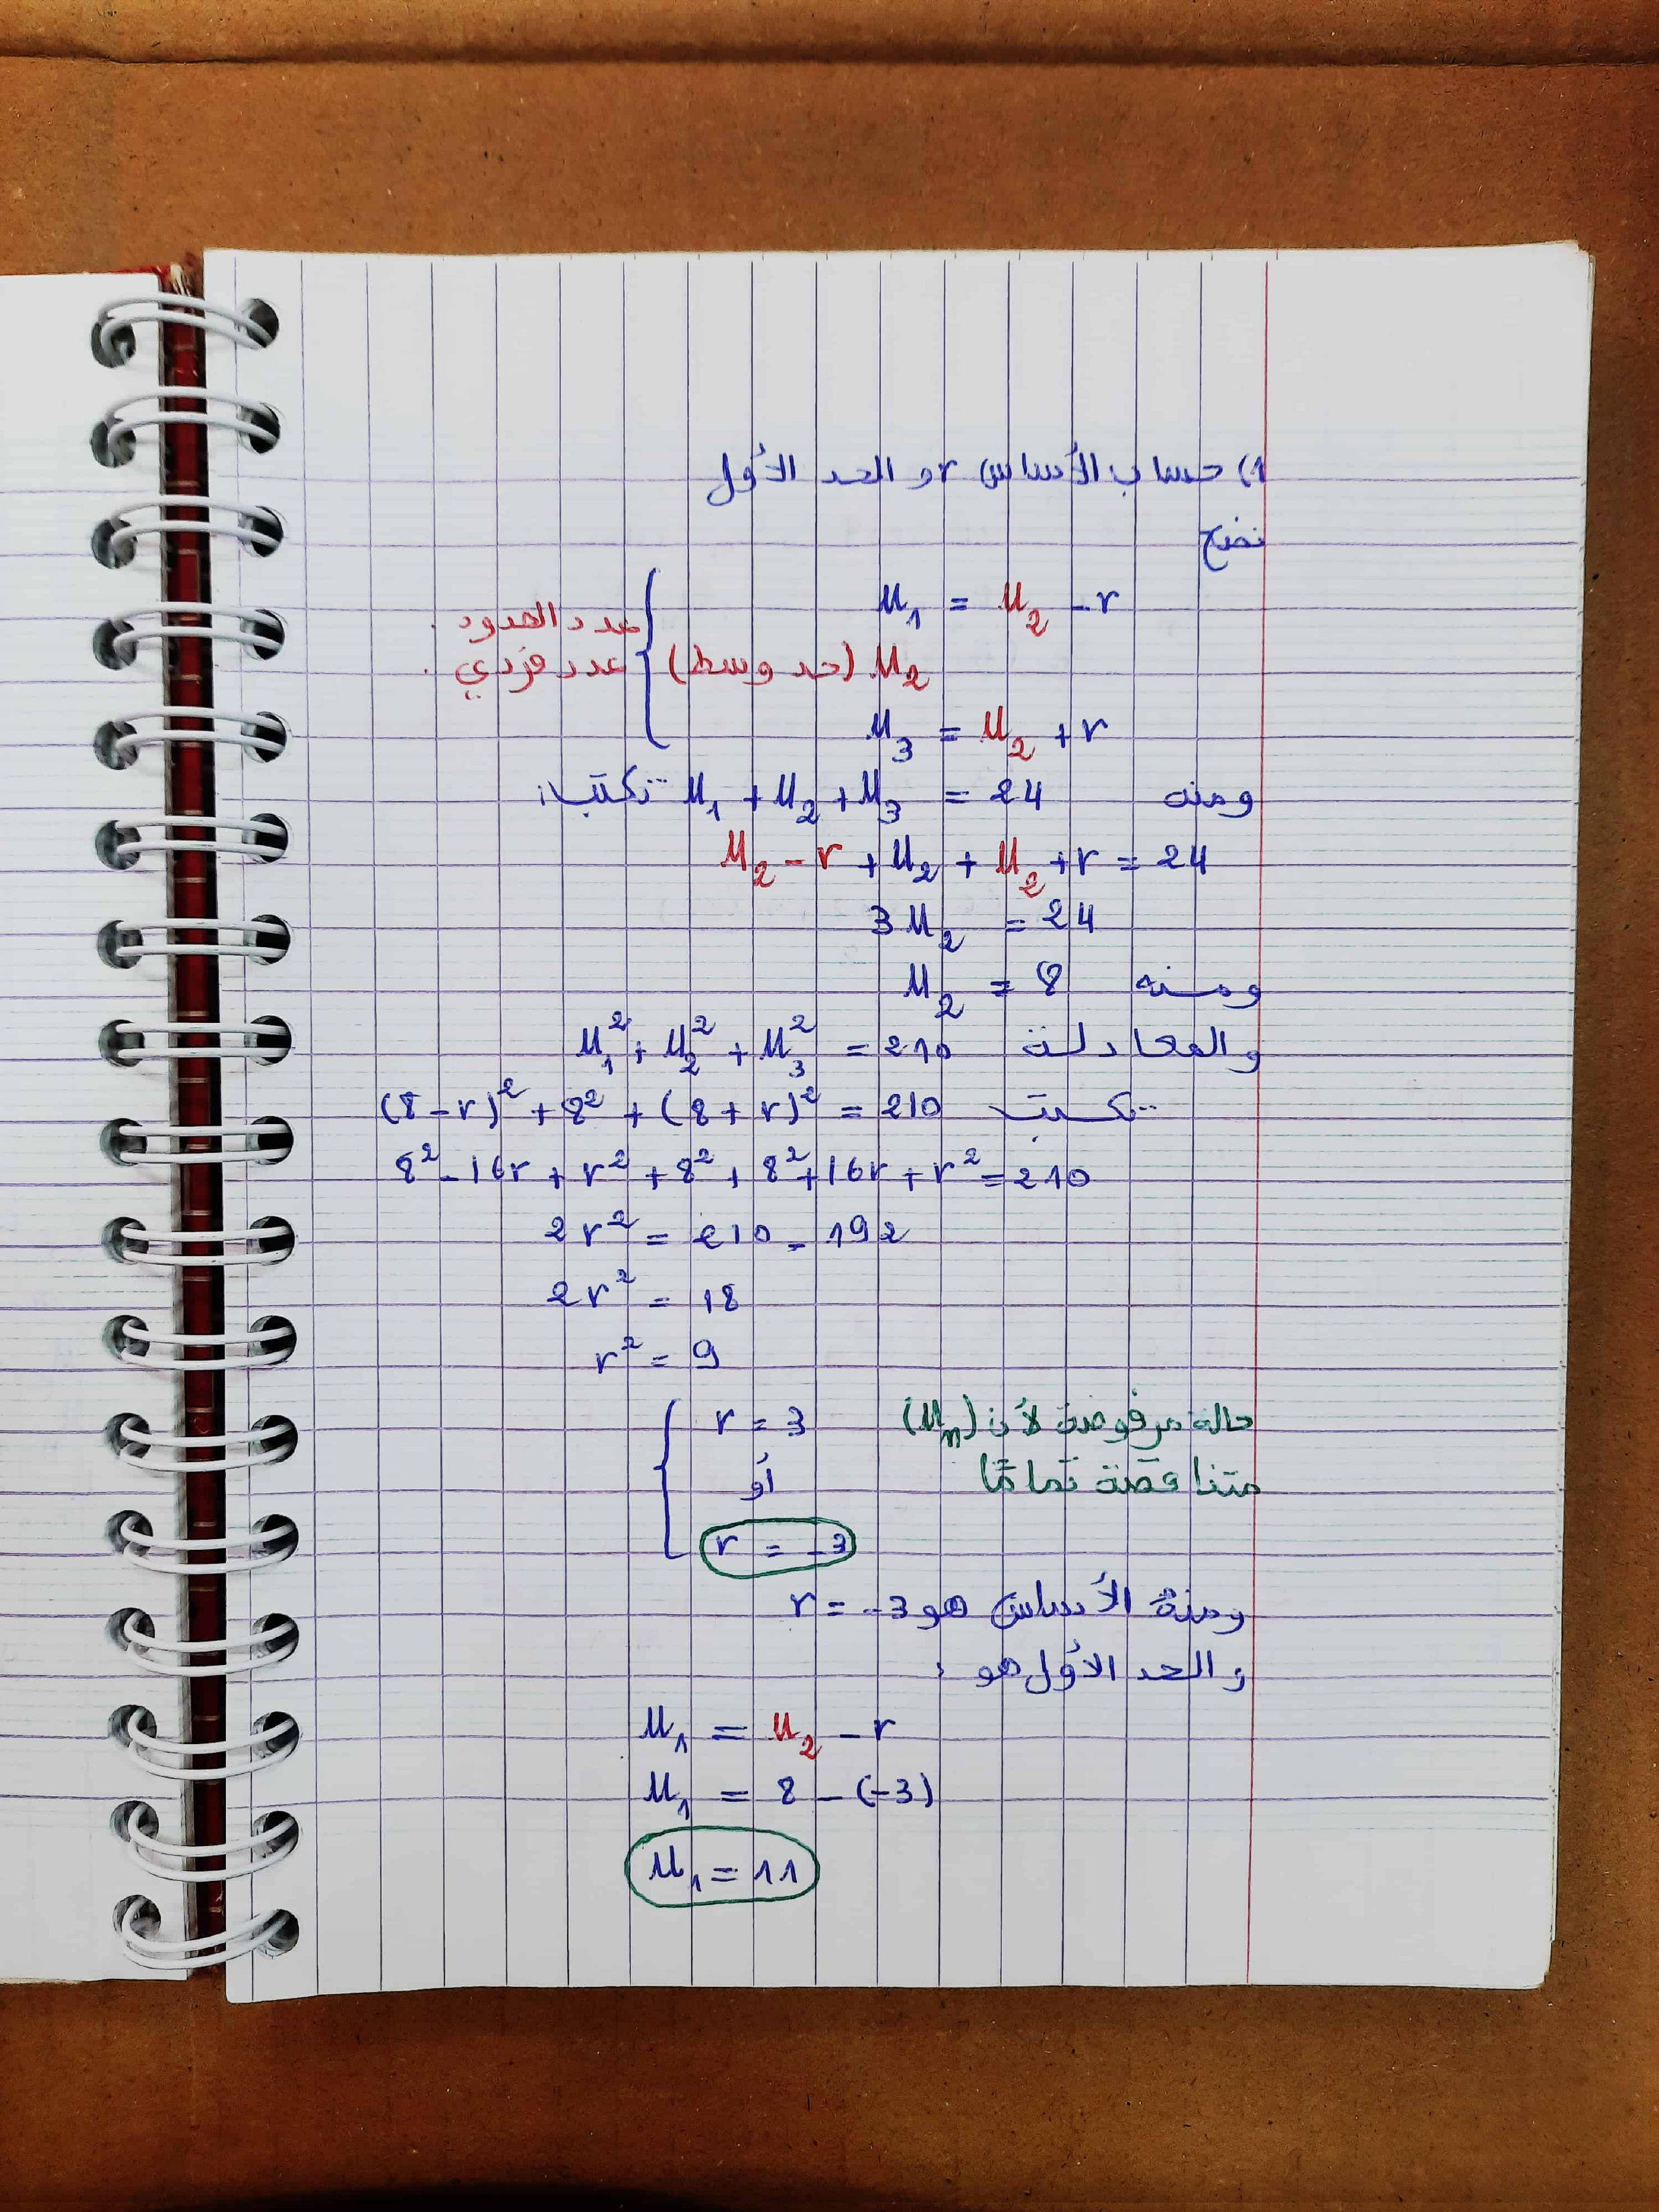 1) حساب الأساس r و الحد الأول
نضع
u₁ = u₂ - r
u₂ (حد وسط) عدد الحدود
عدد فردي
u₃ = u₂ + r
ومنه u₁ + u₂ + u₃ = 24 تكتب:
u₂ - r + u₂ + u₂ + r = 24
3u₂ = 24
ومنه u₂ = 8
والمعادلة u₁² + u₂² + u₃² = 210
تكتب (8 - r)² + 8² + (8 + r)² = 210
8² - 16r + r² + 8² + 8² + 16r + r² = 210
2r² = 210 - 192
2r² = 18
r² = 9
r = 3 حالة مرفوضة لأن (uₙ)
أو متناقصة تمامًا
r = -3
ومنه الأساس هو r = -3
و الحد الأول هو :
u₁ = u₂ - r
u₁ = 8 - (-3)
u₁ = 11